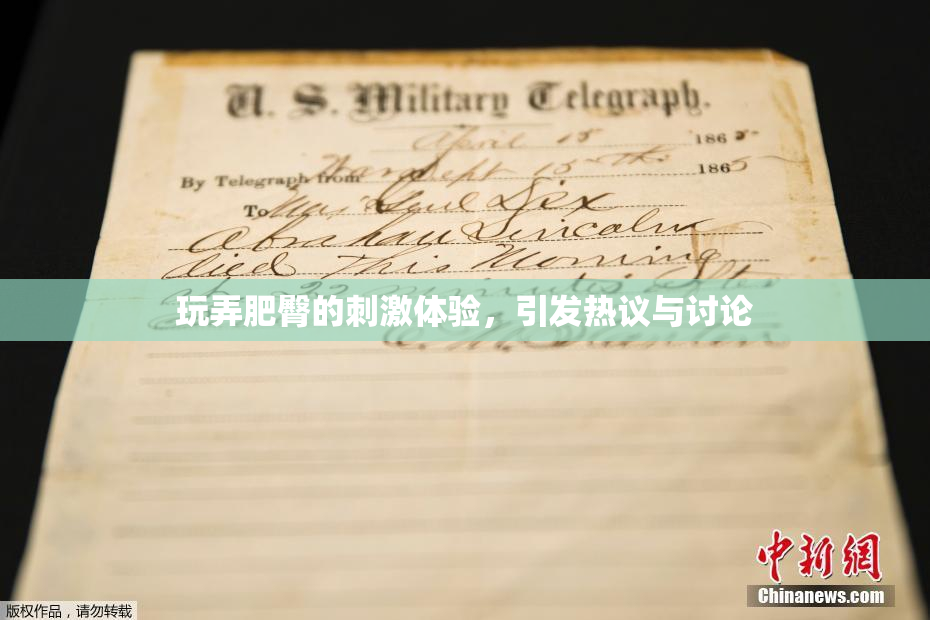 U. S. Military Telegraph.
April 15 1865
By Telegraph from War Dept 15th 1865
To Maj Genl Dix
Abraham Lincoln
died This Morning
22 minutes after
玩弄肥臀的刺激体验，引发热议与讨论
E. M. Stanton
中新网
Chinanews.com
版权作品，请勿转载